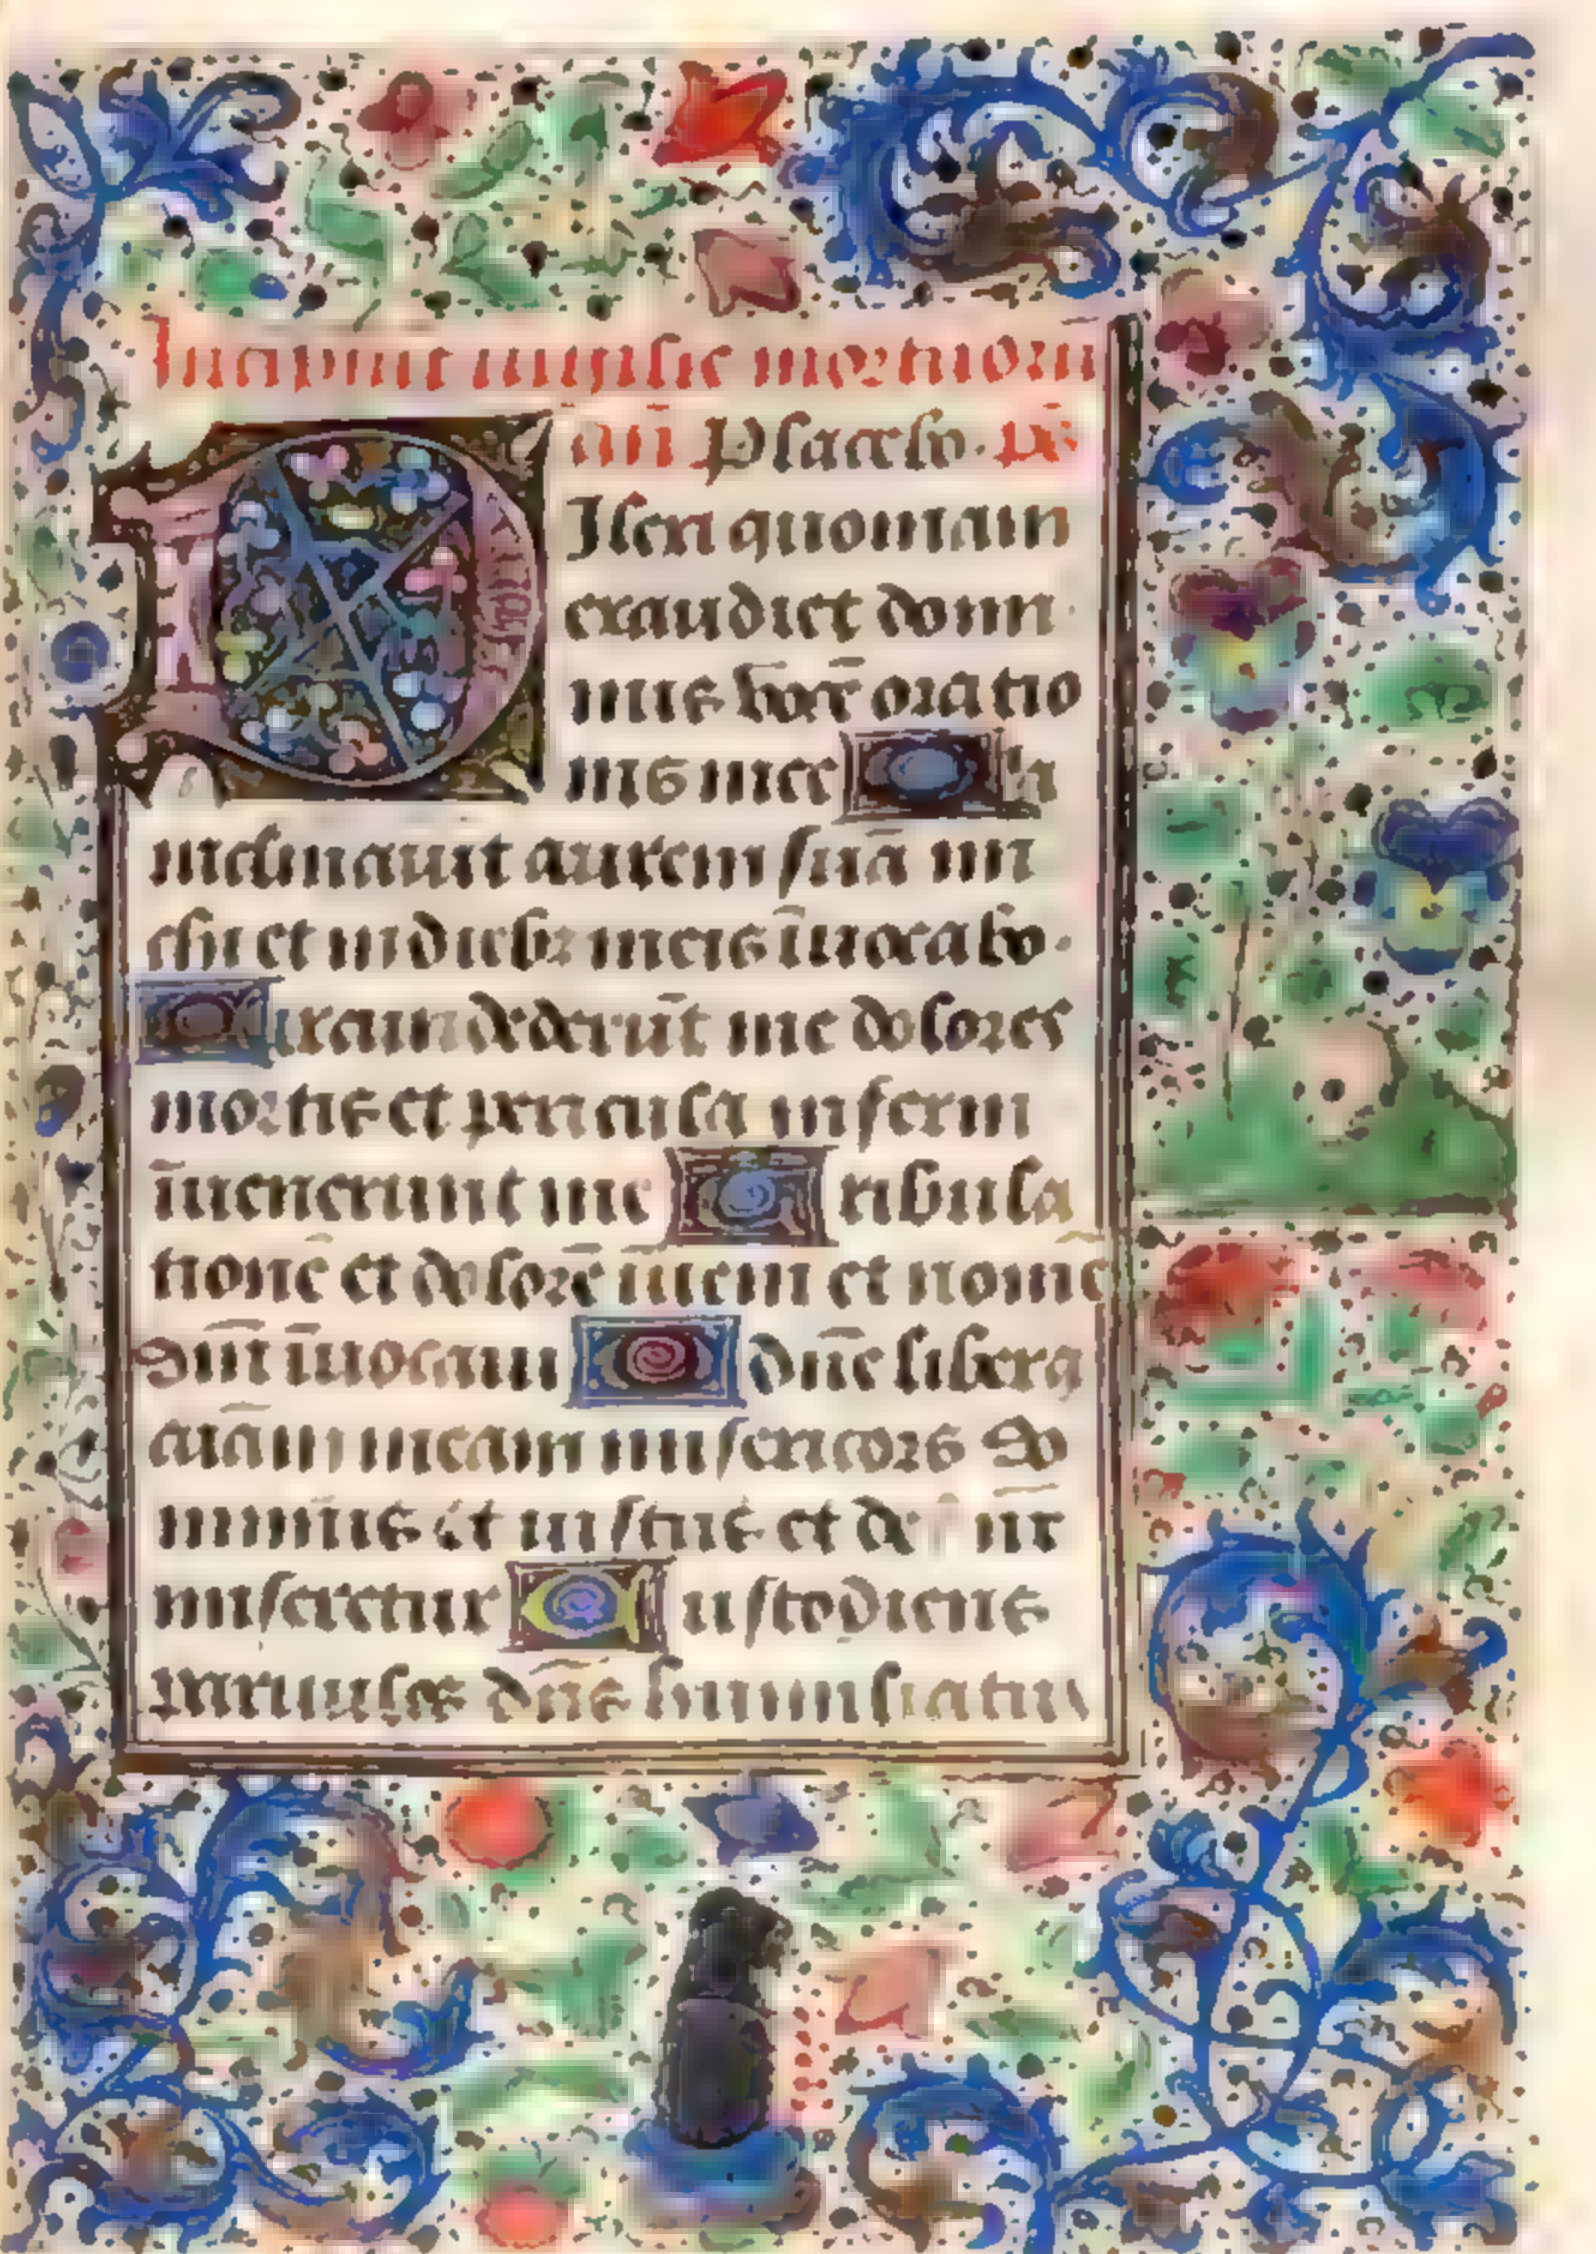 Incipiunt vigilie mortuorū
an̄ Placebo. ps̄
Dilexi quoniam
exaudiet domi
nus vocē oratio
nis mee Quia
inclinauit aurem suā mi
chi et in diebꝫ meis īuocabo.
Circumdederūt me dolores
mortis et pericula inferni
īuenerunt me Tribula
tionē et dolorē īueni et nomē
dn̄i īuocaui O dn̄e libera
aīam meam misericors do
minus et iustus et de nr̄
miseretur Custodiens
paruulos dn̄s humiliatus